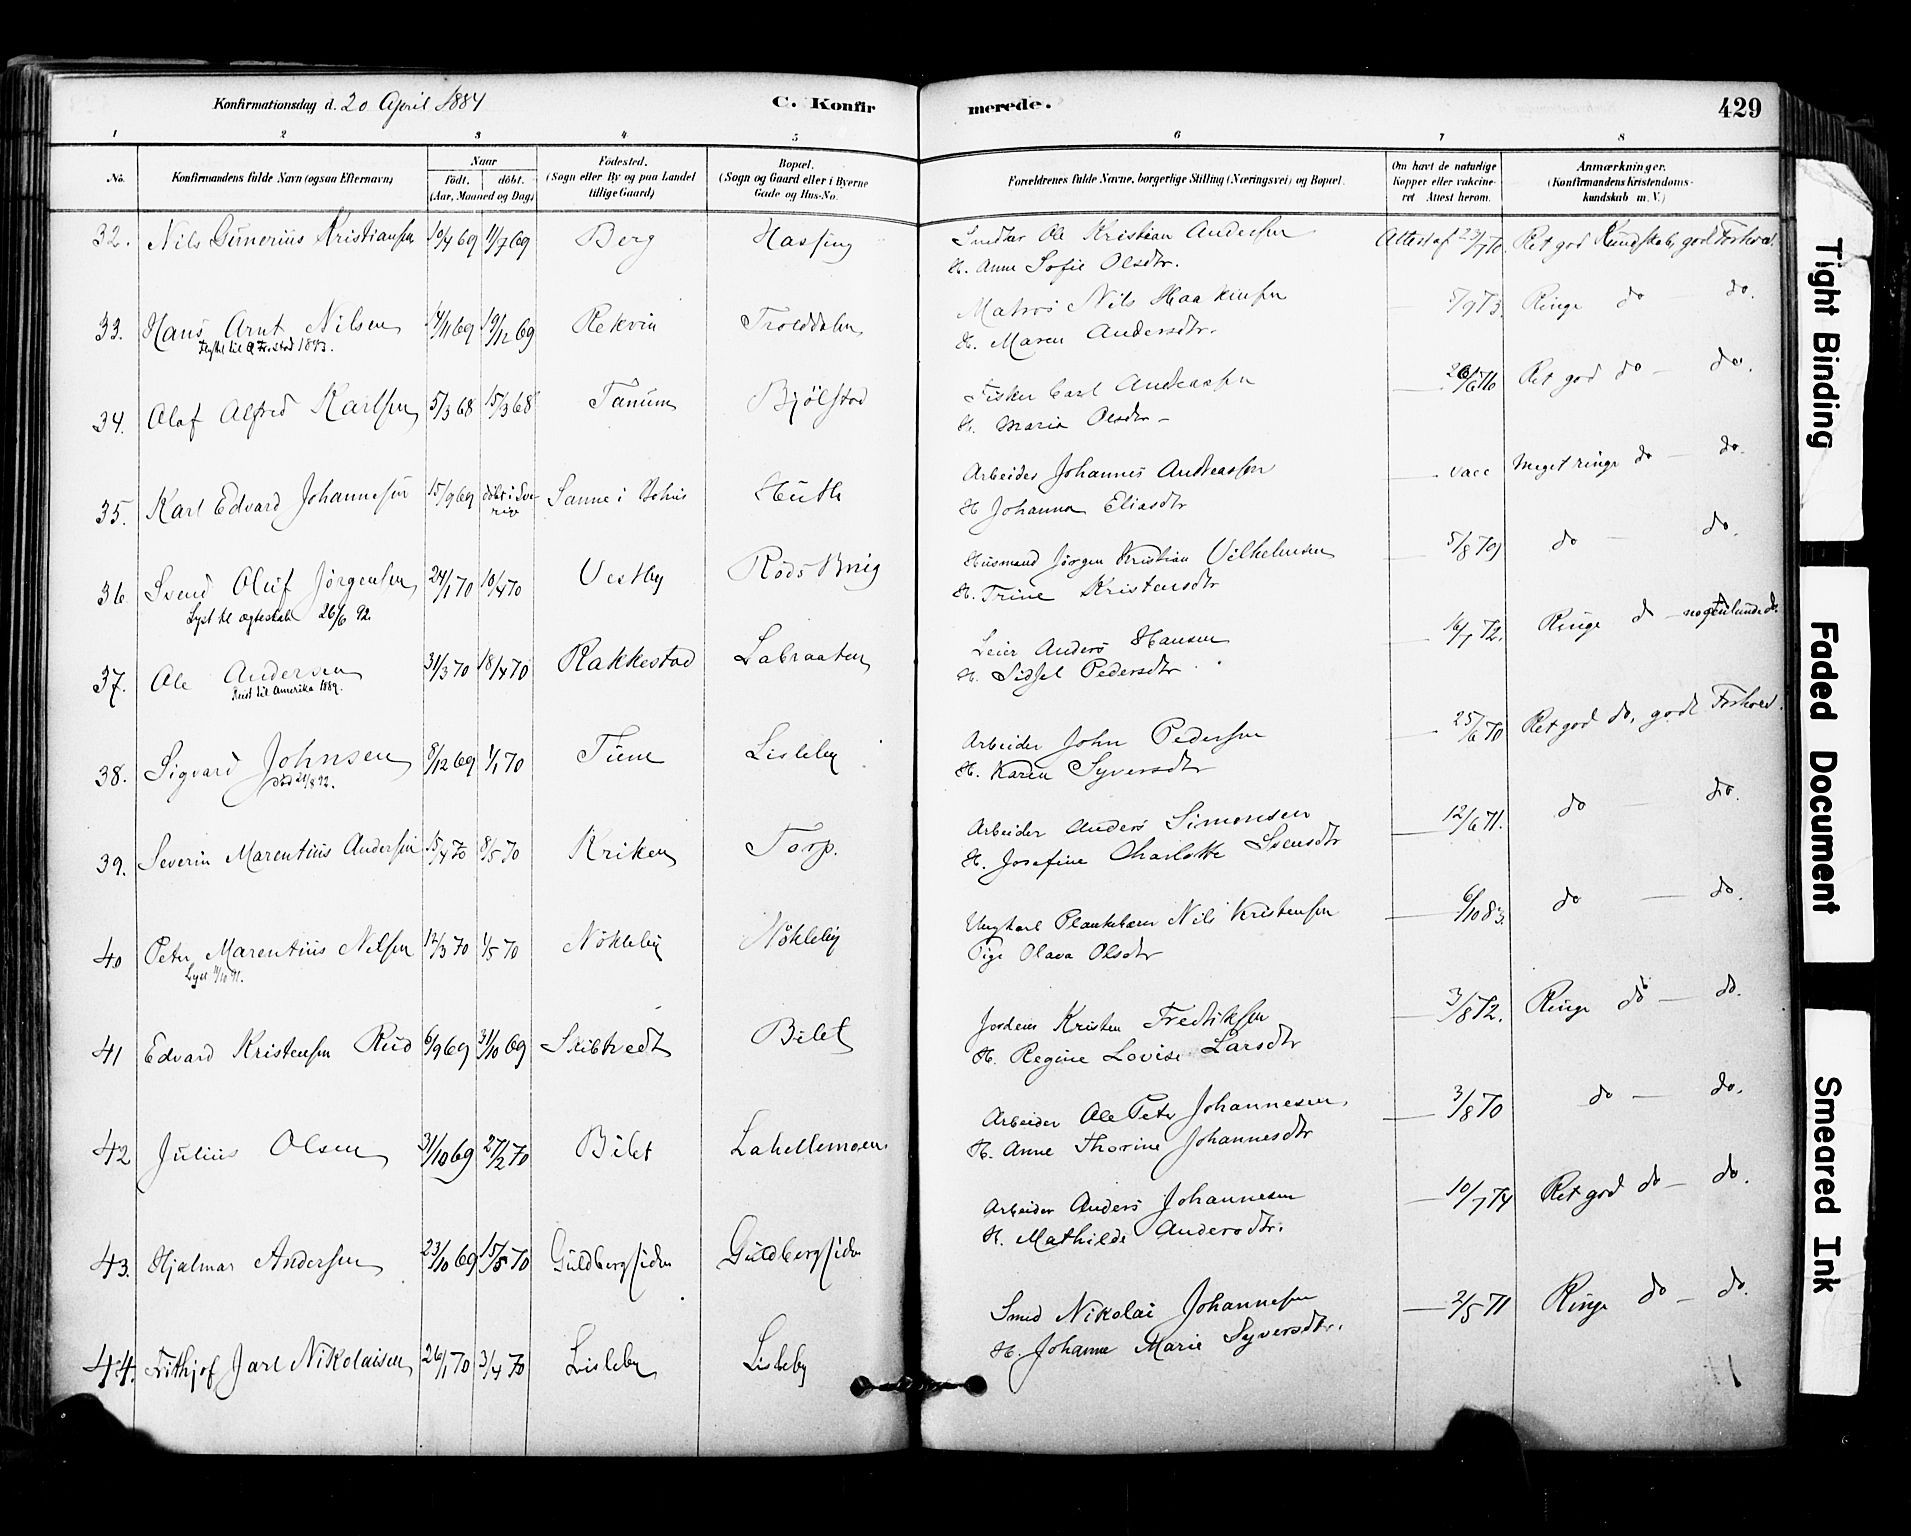 Konfirmationsdag d. 20 April 1884
C. Konfirmerede.
429
1 2 3 4 5 6 7 8
No.
Konfirmandens fulde Navn (ogsaa Efternavn)
Naar
født. døbt.
(Aar, Maaned og Dag)
Fødested.
(Sogn eller By og paa Landet
tillige Gaard)
Bopæl.
(Sogn og Gaard eller i Byerne
Gade og Hus-No.
Forældrenes fulde Navne, borgerlige Stilling (Næringsvei) og Bopæl.
Om havt de naturlige
Kopper eller vakcine-
ret Attest herom.
Anmærkninger.
(Konfirmandens Kristendoms-
kundskab m. V.)
32. Nils Gunerius Kristiansen 10/4 69 11/7 69 Berg Hassing Ole Kristian Andersen Attest af 23/7 70. Ret god Kundskab, god Forhold.
H. Anne Sofie Olsdtr.
33. Hans Arnt Nilsen 14/11 69 19/12 69 Rekvin Trolddalen Matros Nils Haakensen 5/9 73. Ringe do — do.
1873.
H. Maren Andersdtr.
34. Olaf Alfred Karlsen 5/3 68 15/3 68 Tanum Bjølstad Fisker Carl Andreassen Ret god do — do.
H. Maria Olsdtr —
35. Karl Edvard Johannesen 15/9 69 døbt i Sverig Sanne i Bohus Huth Arbeider Johannes Andreassen — vacc Meget ringe do — do.
H Johanna Eliasdtr
36. Svend Oluf Jørgensen 24/1 70 10/4 70 Vestby Røds Brug Husmand Jørgen Kristian Vilhelmsen 5/8 70 do — do.
Lyst til ægteskab 26/6 92.
H. Trine Kristensdtr
37. Ole Andersen 31/3 70 18/4 70 Rakkestad Labraaten Leier Anders Hansen 16/7 72. Ringe do — nogenlunde do.
Reist til Amerika 1889.
H. Sidsel Pedersdtr
38. Sigvard Johnsen 8/12 69 1/1 70 Tune Lisleby Arbeider John Pedersen 25/6 70 Ret god do, godt Forhold.
død 21/8 92.
H. Karen Syversdtr
39. Severin Marentius Andersen 15/4 70 8/5 70 Kriken Torp. Arbeider Anders Simonsen 12/6 71. do — do.
H. Josefine Charlotte Svensdtr
40 Peter Marentius Nilsen 12/3 70 1/5 70 Nøkleby Nøkleby Ungkarl Plankebærer Nils Kristensen 6/10 83. do — do.
Lyst 11/10 91.
Pige Olava Olsdtr
41 Edvard Kristensen Rud 6/9 69 31/10 69 Skibtvedt Bilet Jordeier Kristen Fredriksen 3/8 72. Ringe do — do.
H. Regine Lovise Larsdtr
42 Julius Olsen 31/10 69 27/2 70 Bilet Lahellemoen Arbeider Ole Peter Johannesen, 3/8 70 do — do.
H. Anne Thorine Johannesdtr
43. Hjalmar Andersen 23/10 69 15/5 70 Guldbergsiden Guldbergsiden Arbeider Anders Johannesen 10/7 74 Ret god do — do.
H. Mathilde Andersdtr.
44. Fithjof Jarl Nikolaisen 26/1 70 3/4 70 Lisleby Lisleby Smed Nikolai Johannesen 2/5 71 Ringe do — do.
H. Johanne Marie Syversdtr.
Tight Binding
Faded Document
Smeared Ink